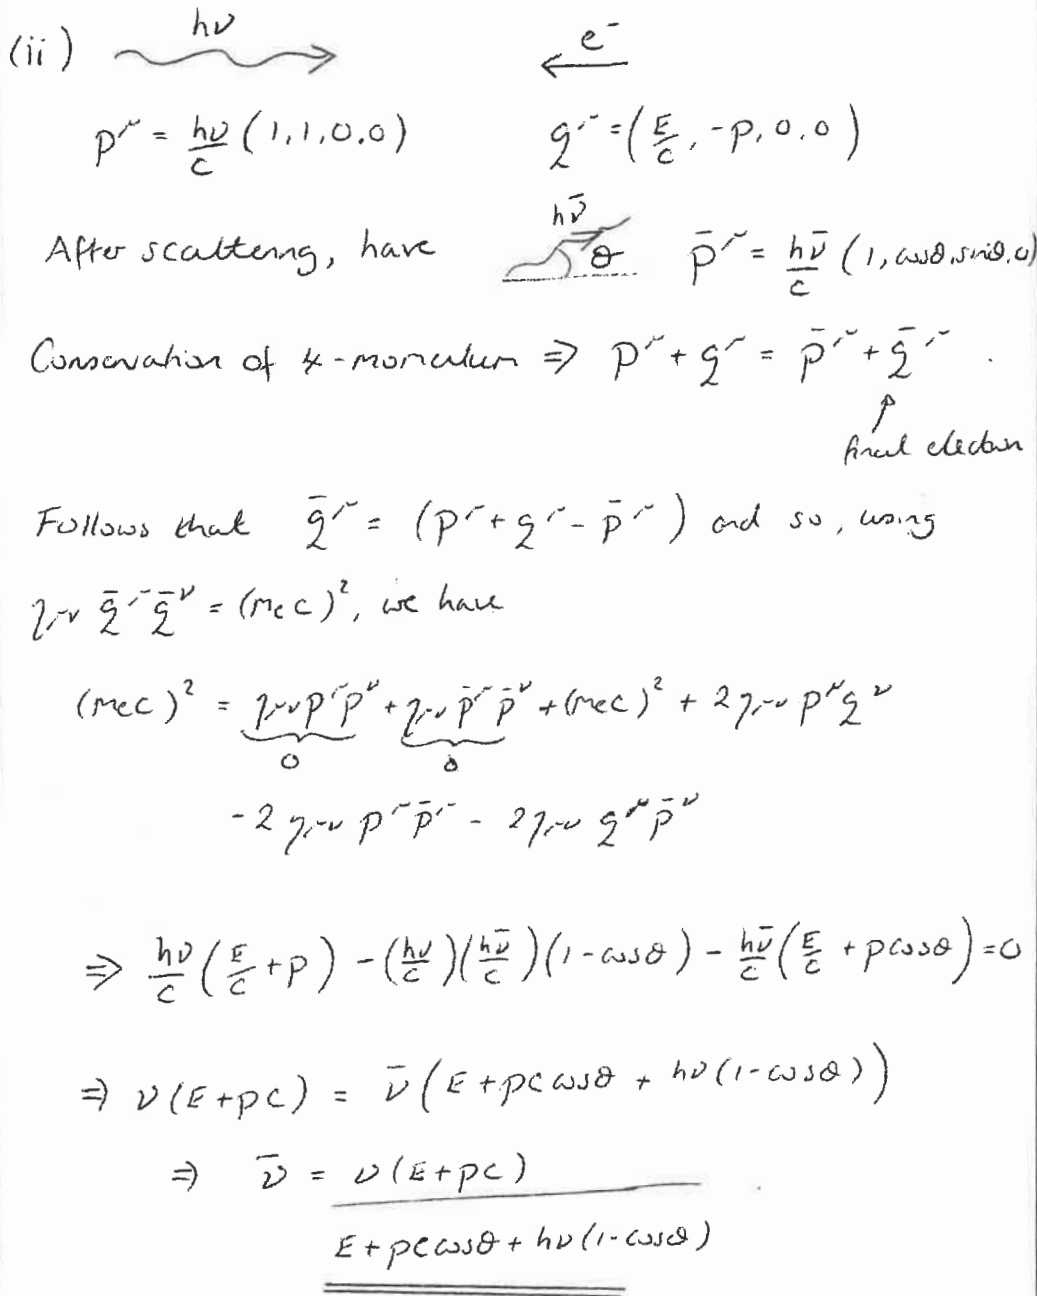 (ii) hν e⁻
p^μ = hν/c (1,1,0,0) q^μ = (E/c, -p, 0, 0)
After scattering, have hν̄ θ p̄^μ = hν̄/c (1, cosθ, sinθ, 0)
Conservation of 4-momentum ⇒ p^μ + q^μ = p̄^μ + q̄^μ .
final electron
Follows that q̄^μ = (p^μ + q^μ - p̄^μ) and so, using
η_μν q̄^μ q̄^ν = (m_e c)², we have
(m_e c)² = η_μν p^μ p^ν + η_μν p̄^μ p̄^ν + (m_e c)² + 2η_μν p^μ q^ν
0 0
-2 η_μν p^μ p̄^μ - 2η_μν q^μ p̄^ν
⇒ hν/c (E/c + p) - (hν/c)(hν̄/c)(1-cosθ) - hν̄/c (E/c + p cosθ) = 0
⇒ ν(E+pc) = ν̄(E + pc cosθ + hν(1-cosθ))
⇒ ν̄ = ν(E+pc)
E + pc cosθ + hν(1-cosθ)